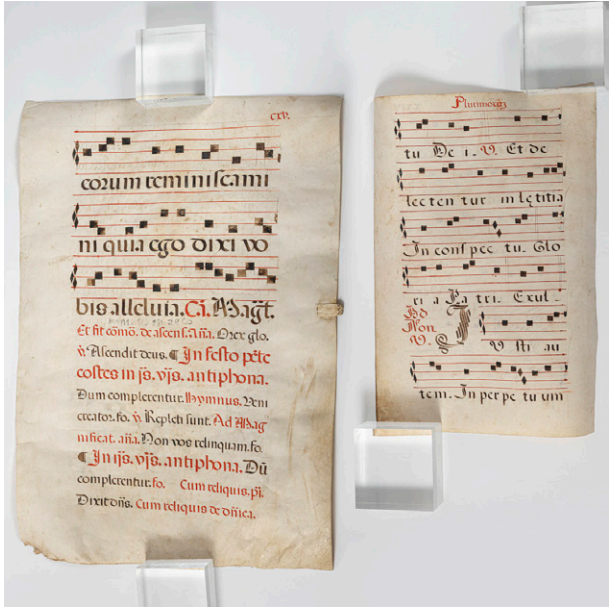 cxv.
eorum reminiscami
ni quia ego dixi vo
bis alleluia. Cā. Magt.
Et fit cōmō. de ascens. Aña. O rex glo.
v. Ascendit deus. ¶ In festo pēte
costes in js. vjs. antiphona.
Dum complerentur. Hymnus. Veni
creator. fo. v. Repleti sunt. Ad Mag
nificat. aña. Non vos relinquam. fo.
¶ In ijs. vjs. antiphona. Dū
complerentur. fo. Cum reliquis. pī.
Dixit dñs. Cum reliquis de dñica.
Plurimorum
tu De i. V. Et de
lec ten tur in lę titia
In conspec tu. Glo
ri a Pa tri. Exul
Ad
Non
V.
J
V sti au
tem. In per pe tu um